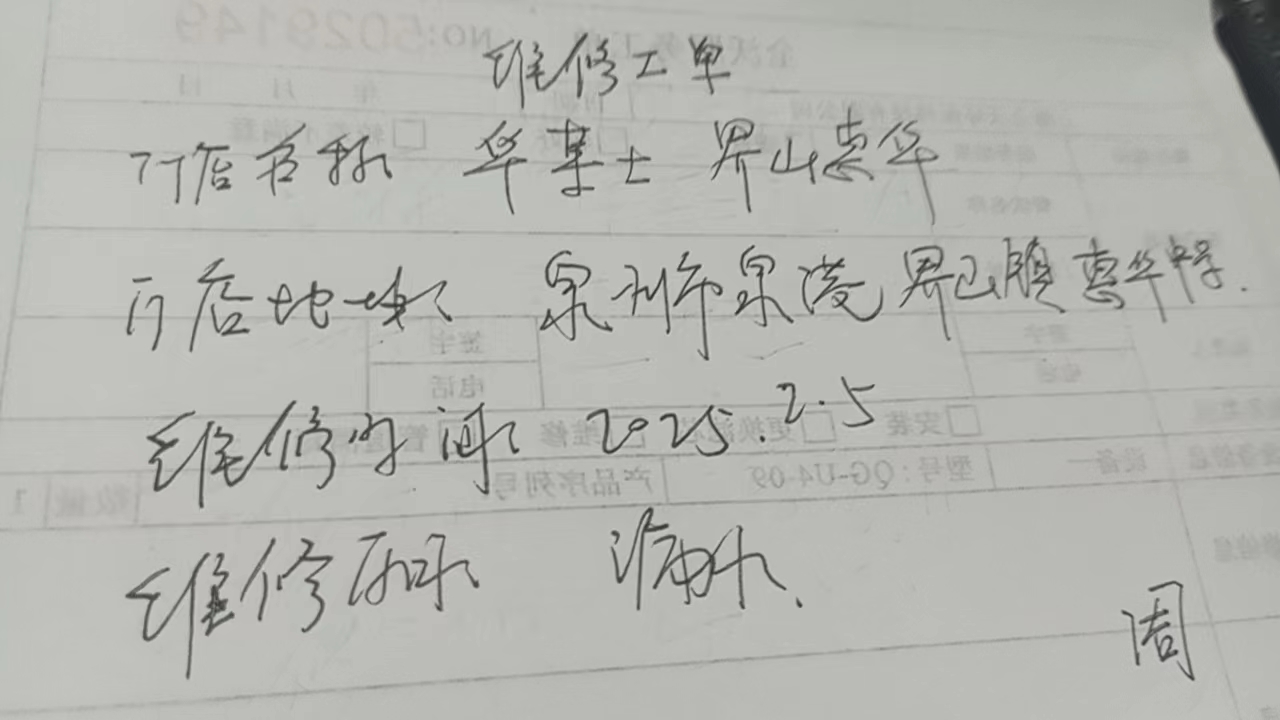 维修工单
门店名称 华莱士 界山惠华
门店地址 泉州市泉港界山镇惠华中学.
维修时间 2025.2.5
维修原因 漏水.
周